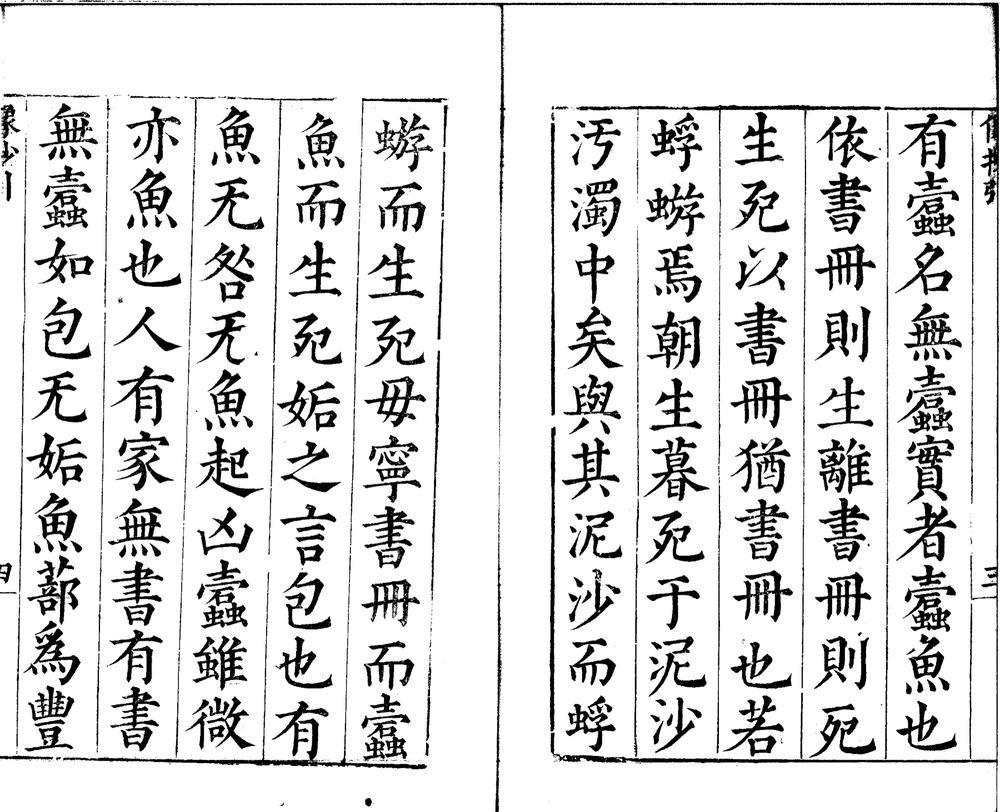 有蠹名無蠹實者蠹魚也
依書冊則生離書冊則死
生死以書冊猶書冊也若
蜉蝣焉朝生暮死于泥沙
汚濁中矣與其泥沙而蜉
蝣而生死毋寧書冊而蠹
魚而生死姤之言包也有
魚无咎无魚起凶蠹雖微
亦魚也人有家無書有書
無蠹如包无姤魚蔀為豐